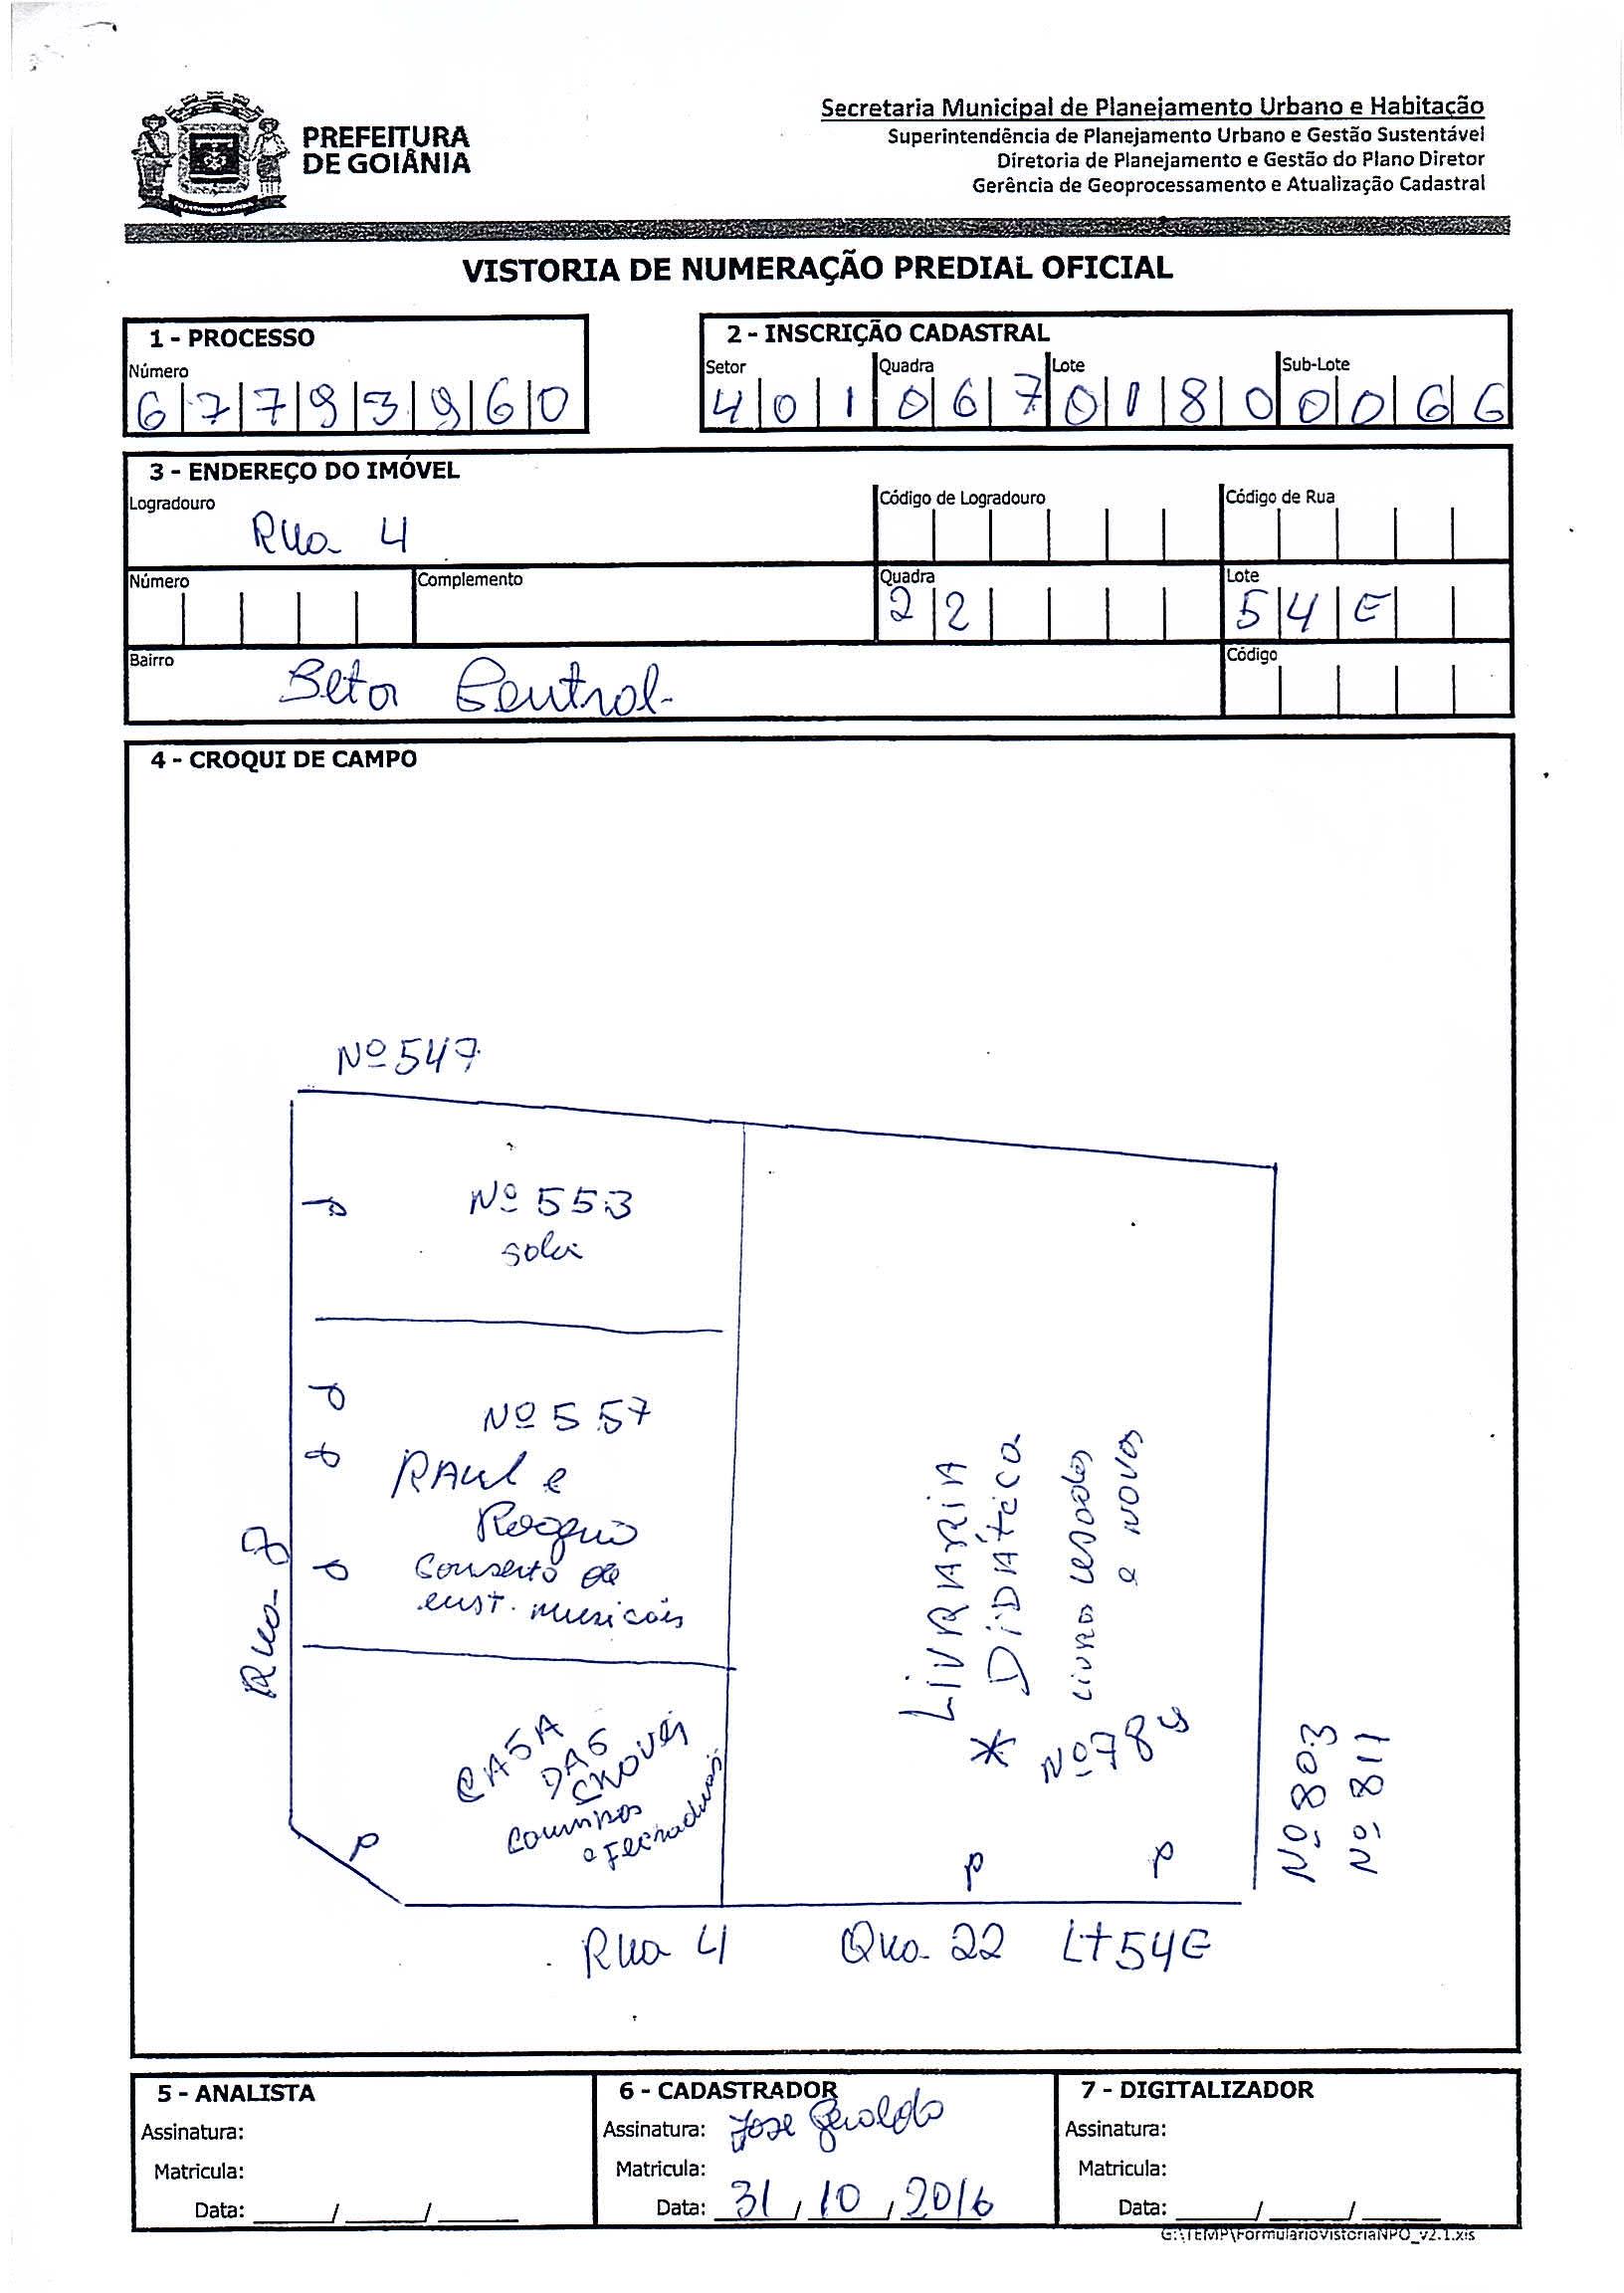 PREFEITURA
DE GOIÂNIA
Secretaria Municipal de Planejamento Urbano e Habitação
Superintendência de Planejamento Urbano e Gestão Sustentável
Diretoria de Planejamento e Gestão do Plano Diretor
Gerência de Geoprocessamento e Atualização Cadastral
VISTORIA DE NUMERAÇÃO PREDIAL OFICIAL
1 - PROCESSO
Número
67793960
2 - INSCRIÇÃO CADASTRAL
Setor Quadra Lote Sub-Lote
401 067 0180 0066
3 - ENDEREÇO DO IMÓVEL
Logradouro Código de Logradouro Código de Rua
Rua 4
Número Complemento Quadra Lote
22 54E
Bairro Código
Setor Central
4 - CROQUI DE CAMPO
Nº 547
Nº 553
Nº 557
RAul e
Conserto de
inst. musicais
Rua 8
CASA
DAS
CHAVES
Carimbos
e Fechaduras
LiVRARiA
DiDÁticA
Livros usados
e novos
* Nº 78
Nº 803
Nº 811
Rua 4 Qua 22 Lt 54E
5 - ANALISTA
Assinatura:
Matricula:
Data: ____/____/____
6 - CADASTRADOR
Assinatura: Jose Geraldo
Matricula:
Data: 31/10/2016
7 - DIGITALIZADOR
Assinatura:
Matricula:
Data: ____/____/____
G:\TEMP\FormularioVistoriaNPO_v2.1.xls